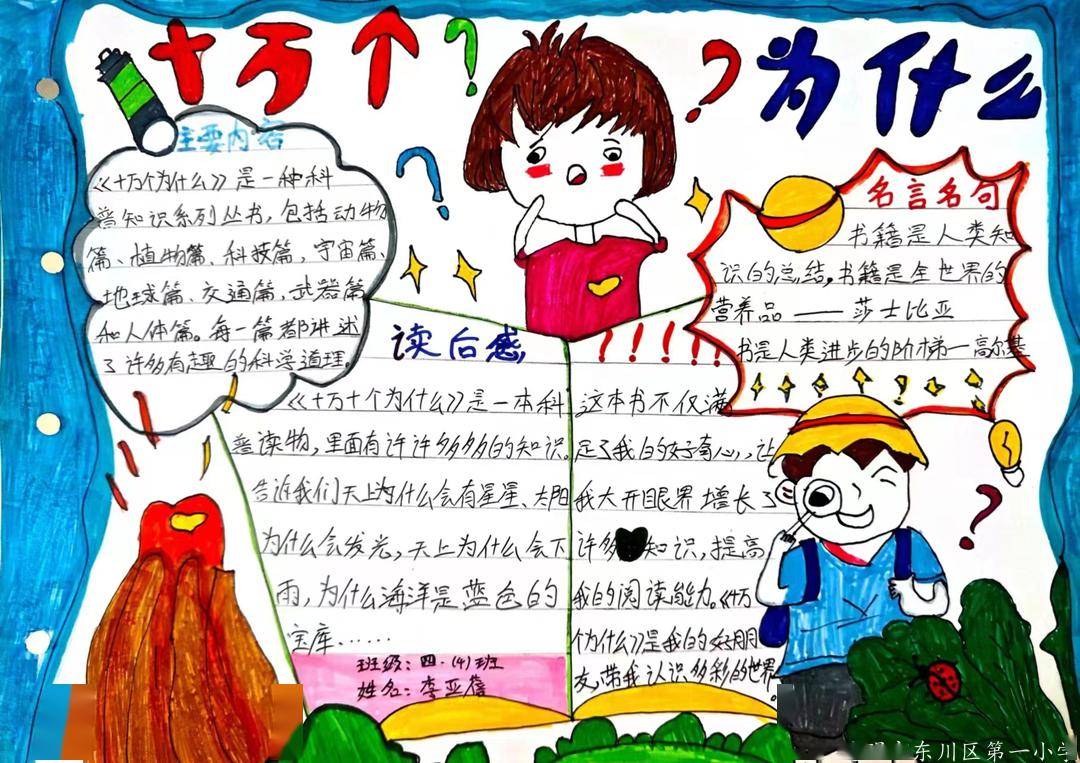 十万个?
?为什么
主要内容
《十万个为什么》是一种科
普知识系列丛书,包括动物
篇、植物篇、科技篇,宇宙篇、
地球篇、交通篇,武器篇
和人体篇。每一篇都讲述
了许多有趣的科学道理。
名言名句
书籍是人类知
识的总结,书籍是全世界的
营养品——莎士比亚
书是人类进步的阶梯—高尔基
读后感
《十万个为什么》是一本科
普读物,里面有许许多多的知识。
告诉我们天上为什么会有星星、太阳
为什么会发光,天上为什么会下
雨,为什么海洋是蓝色的
宝库......
!!!!!!
这本书不仅满
足了我的好奇心,,让
我大开眼界增长了
许多知识,提高
我的阅读能力。《十万
个为什么》是我的好朋
友,带我认识多彩的世界。
班级:四·(4)班
姓名:李亚蓓
东川区第一小学